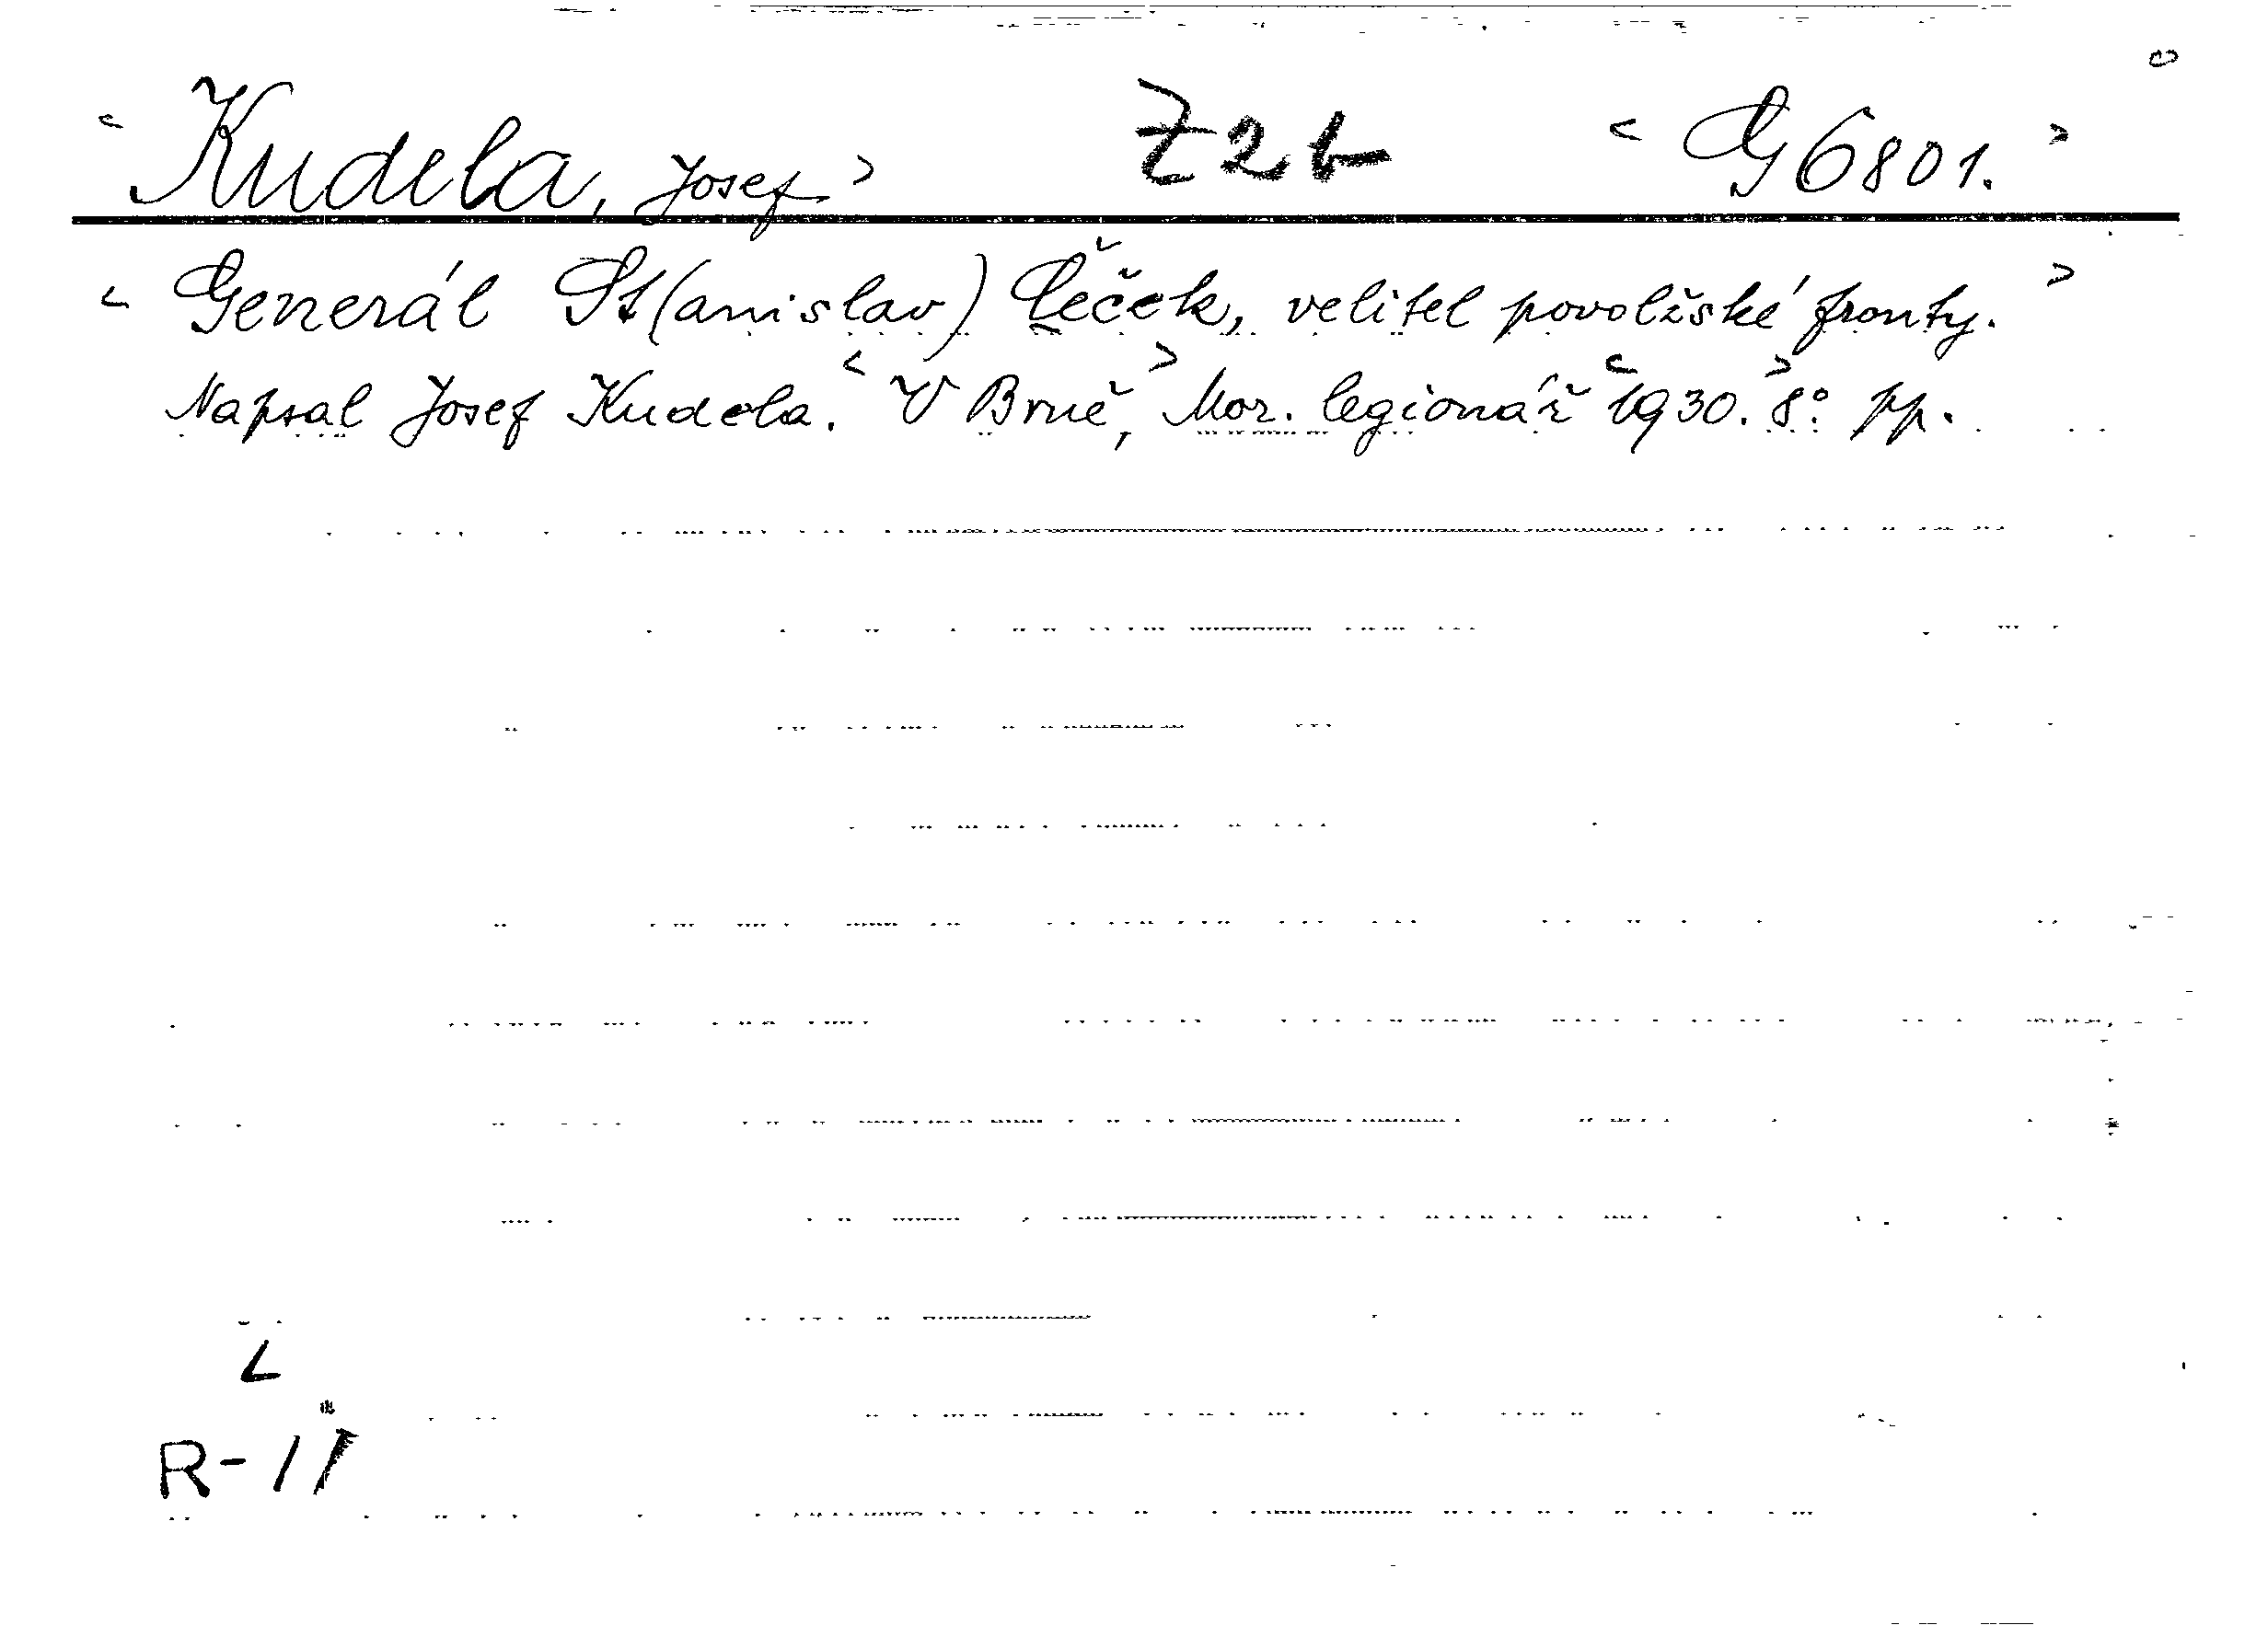 < Kudela, Josef > Z2b < G 6801. >
< Generál St(anislav) Čeček, velitel povolžské fronty. >
Napsal Josef Kudela. < V Brně, > Mor. legionář < 1930. > 8° pp.
L
R-11